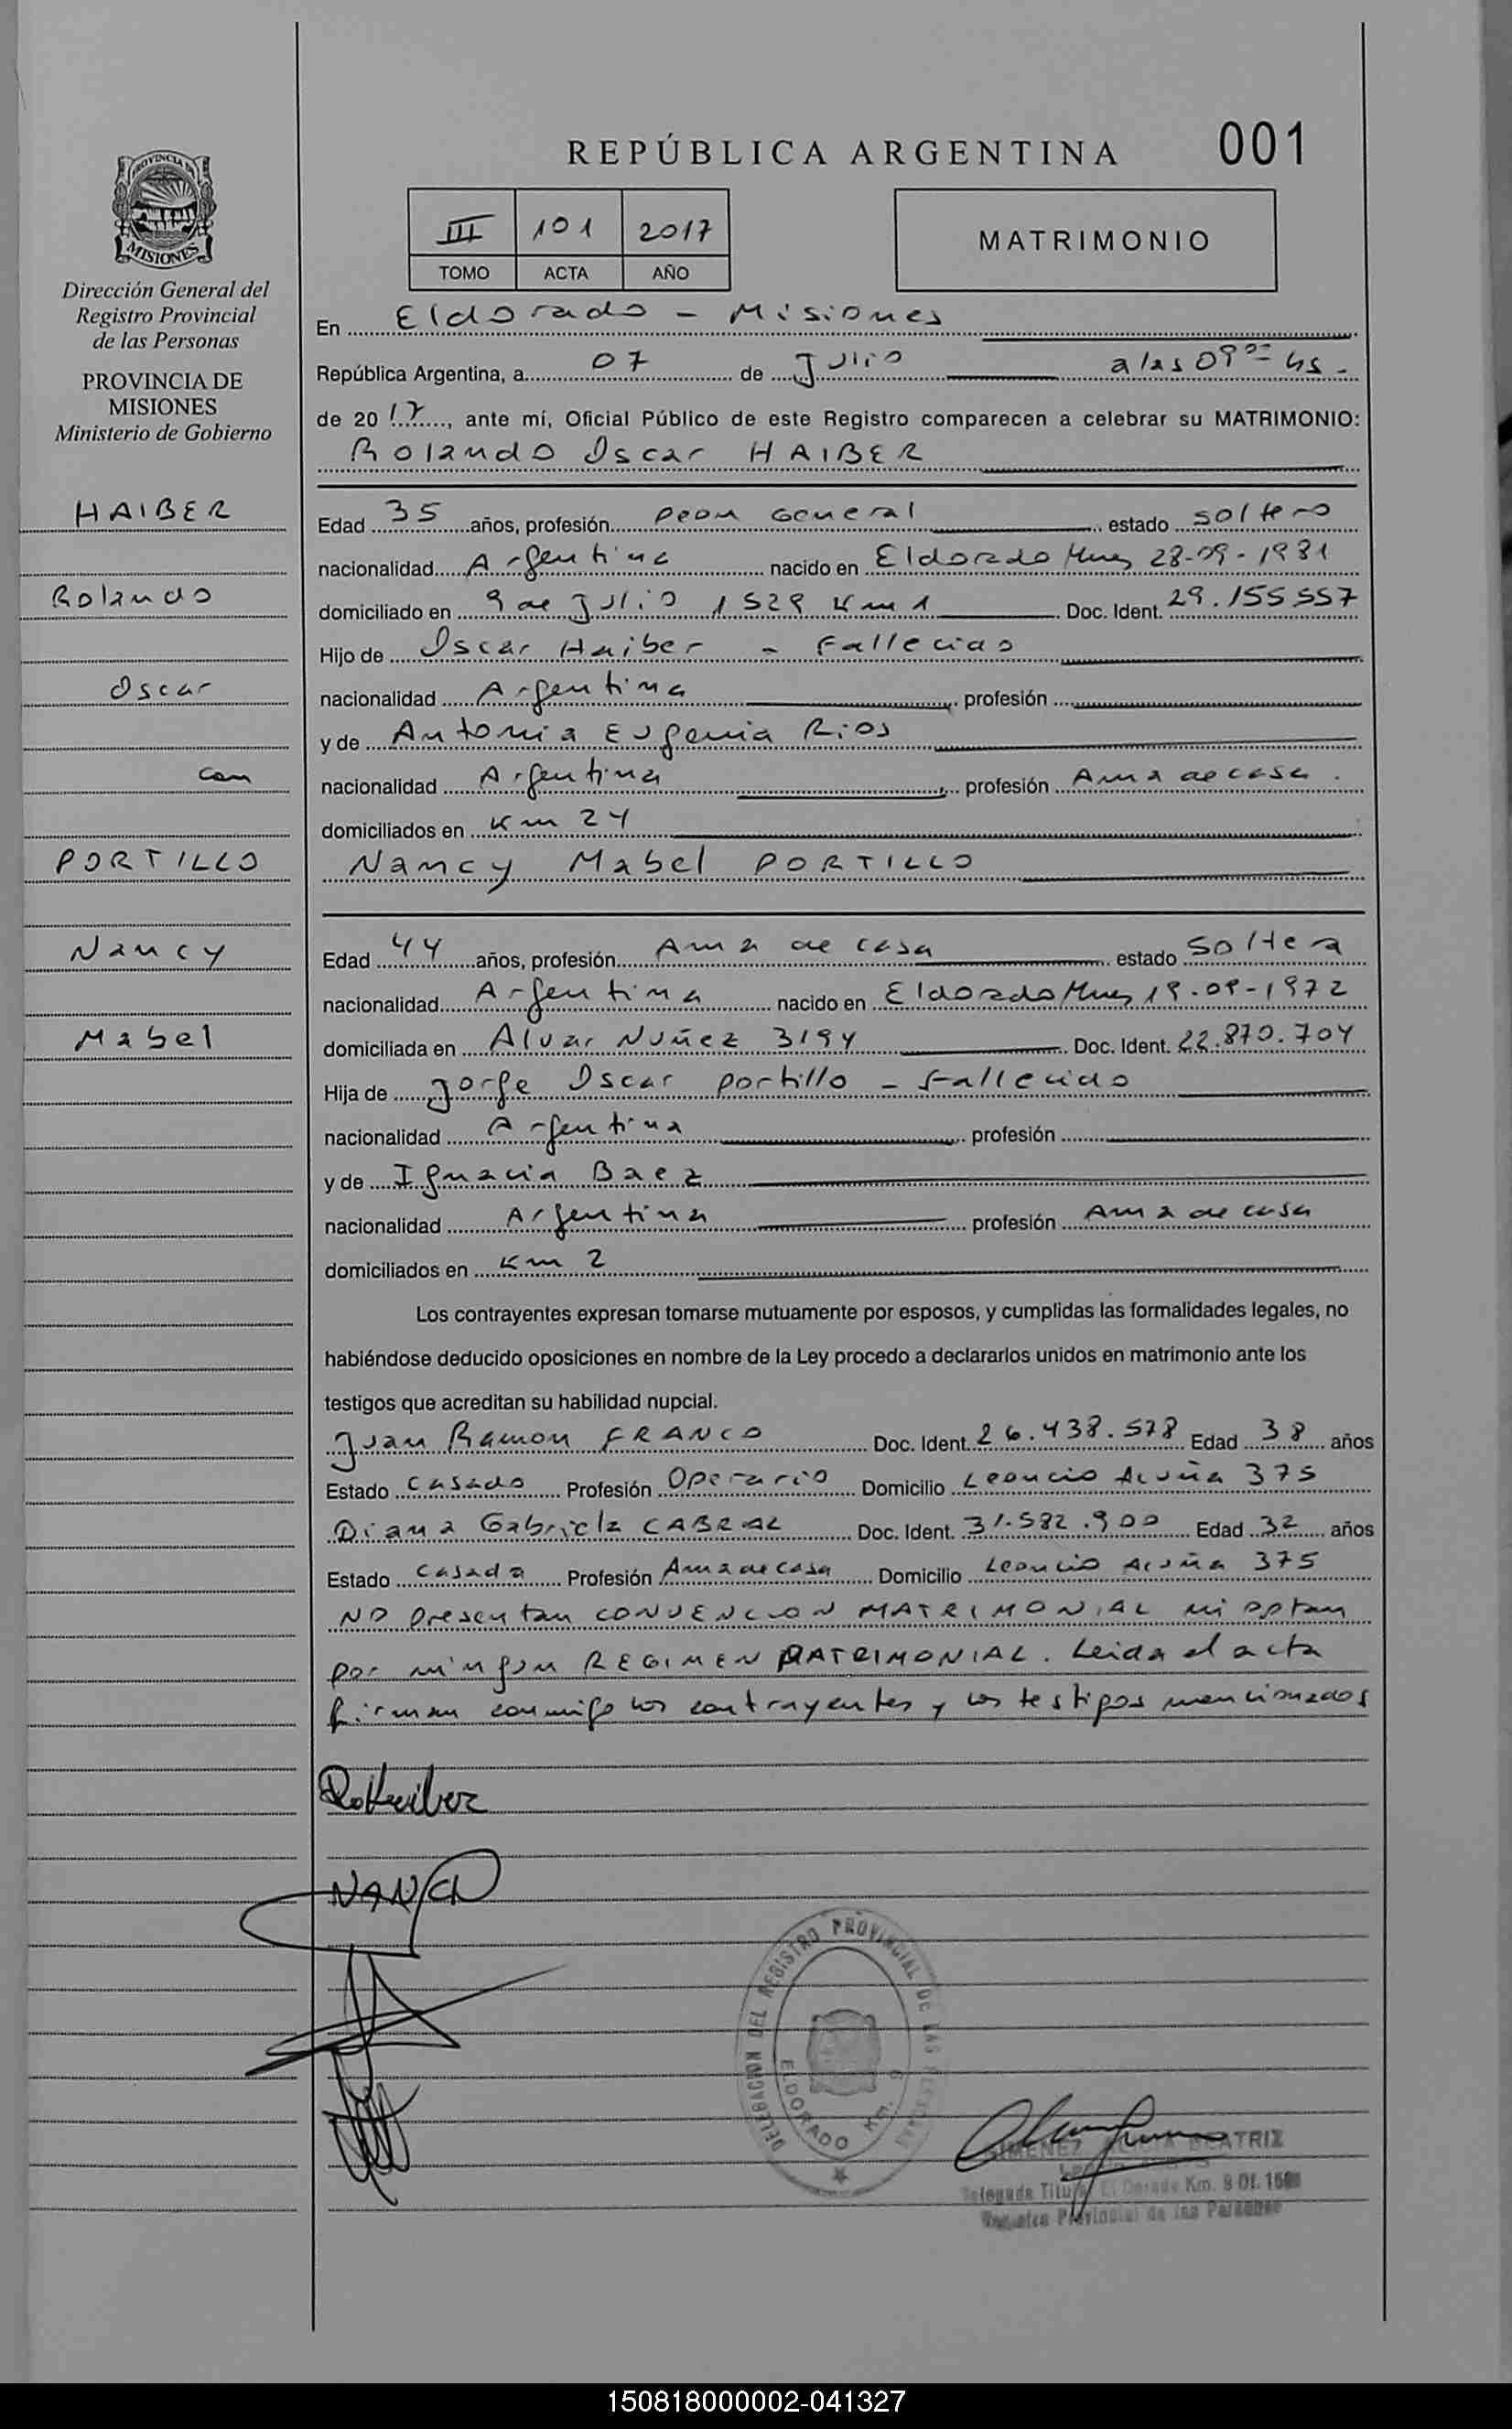 REPÚBLICA ARGENTINA 001
PROVINCIA DE MISIONES
III 101 2017
TOMO ACTA AÑO
MATRIMONIO
Dirección General del
Registro Provincial
de las Personas
PROVINCIA DE
MISIONES
Ministerio de Gobierno
HAIBER
Rolando
Oscar
con
PORTILLO
Nancy
Mabel
En Eldorado - Misiones
República Argentina, a 07 de Julio a las 09 00 hs -
de 2017, ante mí, Oficial Público de este Registro comparecen a celebrar su MATRIMONIO:
Rolando Oscar HAIBER
Edad 35 años, profesión peon General estado soltero
nacionalidad Argentina nacido en Eldorado Mnes 28-09-1981
domiciliado en 9 de Julio 1529 Km 1 Doc. Ident. 29.155.557
Hijo de Oscar Haiber - Fallecido
nacionalidad Argentina, profesión
y de Antonia Eugenia Rios
nacionalidad Argentina, profesión Ama de casa.
domiciliados en Km 24
Nancy Mabel PORTILLO
Edad 44 años, profesión Ama de casa estado Soltera
nacionalidad Argentina nacido en Eldorado Mnes 19-09-1972
domiciliada en Alvar Nuñez 3194 Doc. Ident. 22.870.704
Hija de Jorge Oscar portillo - Fallecido
nacionalidad Argentina profesión
y de Ignacia Baez
nacionalidad Argentina profesión Ama de casa
domiciliados en Km 2
Los contrayentes expresan tomarse mutuamente por esposos, y cumplidas las formalidades legales, no
habiéndose deducido oposiciones en nombre de la Ley procedo a declararlos unidos en matrimonio ante los
testigos que acreditan su habilidad nupcial.
Juan Ramon FRANCO Doc. Ident. 26.438.578 Edad 38 años
Estado Casado Profesión Operario Domicilio Leoncio Acuña 375
Diana Gabriela CABRAL Doc. Ident. 31.582.900 Edad 32 años
Estado Casada Profesión Ama de casa Domicilio Leoncio Acuña 375
NO presentan CONVENCION MATRIMONIAL ni optan
por ningun REGIMEN PATRIMONIAL. Leida el acta
firman conmigo los contrayentes y los testigos mencionados
RoHaiber
NANCY
DELEGACION DEL REGISTRO PROVINCIAL DE LAS PERSONAS
ELDORADO Km. 9
GIMENEZ ALICIA BEATRIZ
Delegada Titular El Dorado Km. 9 Of. 1598
Registro Provincial de las Personas
150818000002-041327